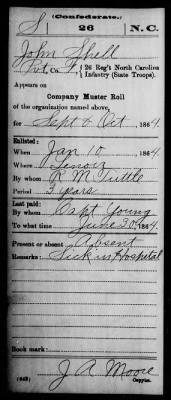 (Confederate.)
S 26 N.C.
John Shell
Pvt, Co. F, 26 Reg't North Carolina
Infantry (State Troops)
Appears on
Company Muster Roll
of the organization named above,
for Sept & Oct, 1864.
Enlisted:
When Jan 10, 1864.
Where Lenoir
By whom R M Tuttle
Period 3 years
Last paid:
By whom Capt Young
To what time June 30, 1864.
Present or absent Absent
Remarks: Sick in Hospital
Book mark:
J A Moore
(642) Copyist.